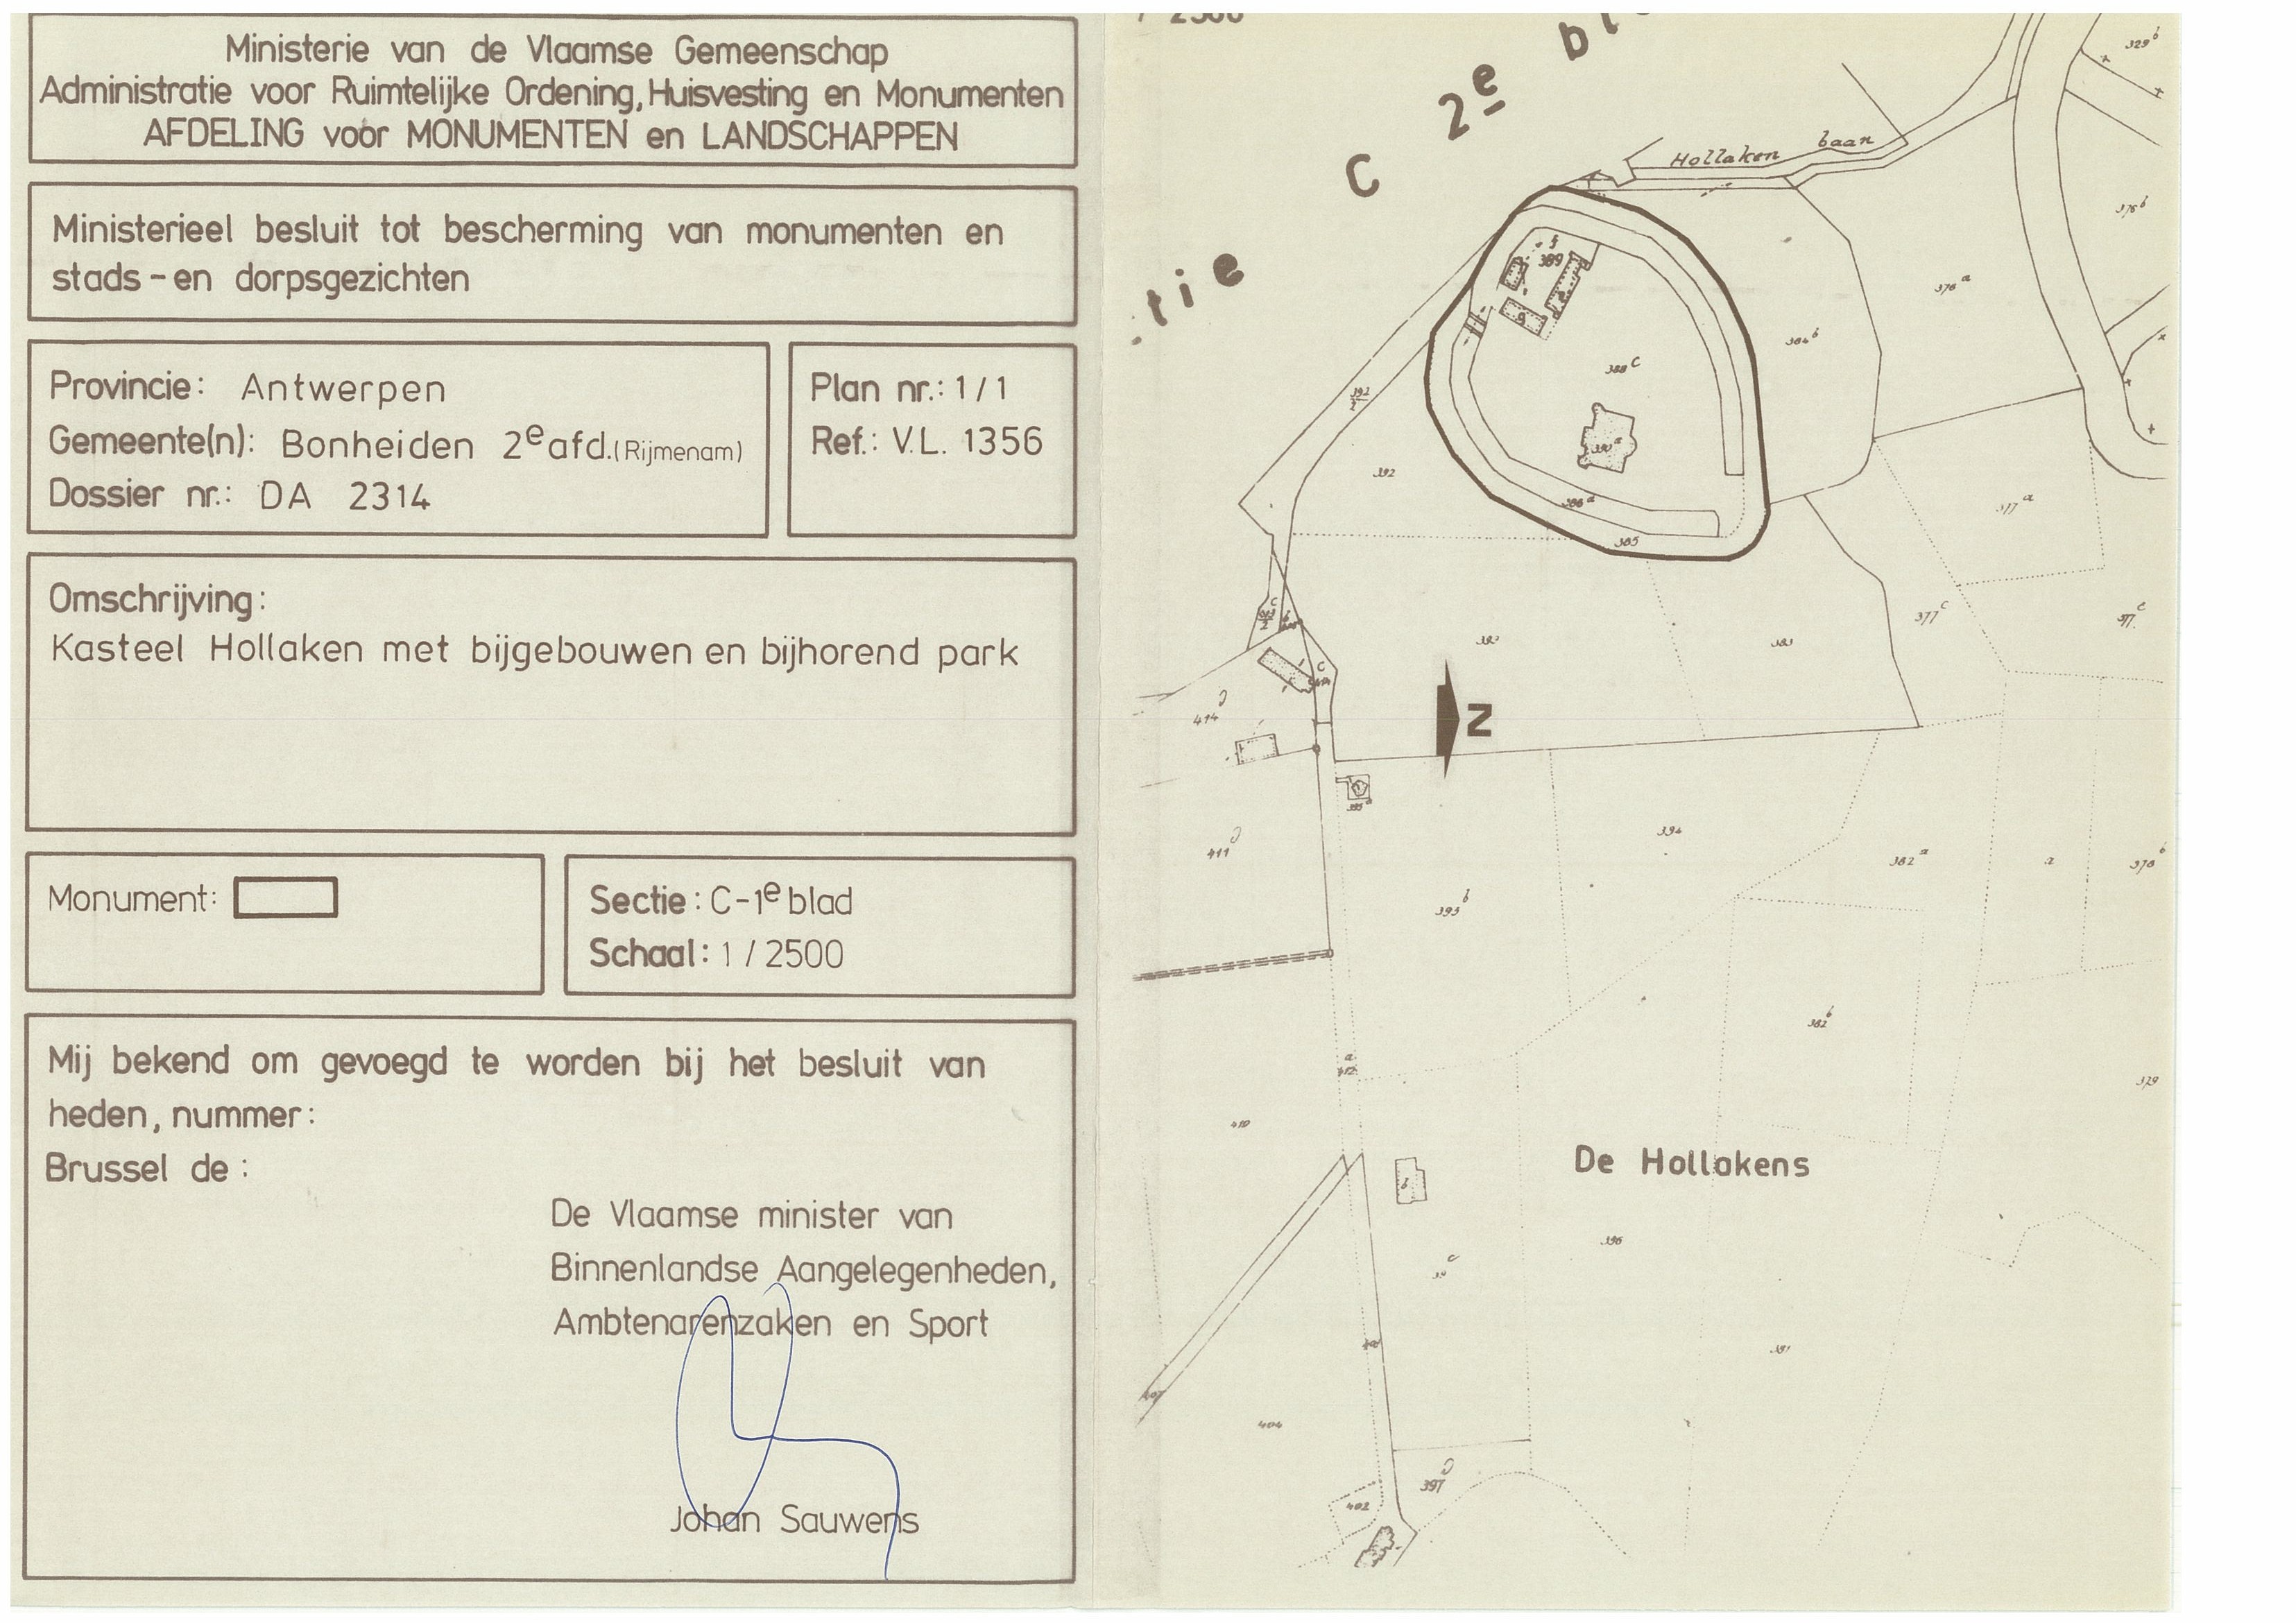 Ministerie van de Vlaamse Gemeenschap
Administratie voor Ruimtelijke Ordening, Huisvesting en Monumenten
AFDELING voor MONUMENTEN en LANDSCHAPPEN
Ministerieel besluit tot bescherming van monumenten en
stads-en dorpsgezichten
Provincie: Antwerpen
Gemeente(n): Bonheiden 2e afd. (Rijmenam)
Dossier nr.: DA 2314
Plan nr.: 1/1
Ref.: V.L. 1356
Omschrijving:
Kasteel Hollaken met bijgebouwen en bijhorend park
Monument:
Sectie: C-1e blad
Schaal: 1/2500
Mij bekend om gevoegd te worden bij het besluit van
heden, nummer:
Brussel de:
De Vlaamse minister van
Binnenlandse Aangelegenheden,
Ambtenarenzaken en Sport
Johan Sauwens
C 2e
Hollaken baan
329b
376b
376a
389
384b
388c
392
386a
385
377a
377c
377e
393
383
414
N
411
394
382a
a
378b
393b
382b
410
379
De Hollakens
396
391
404
397
402